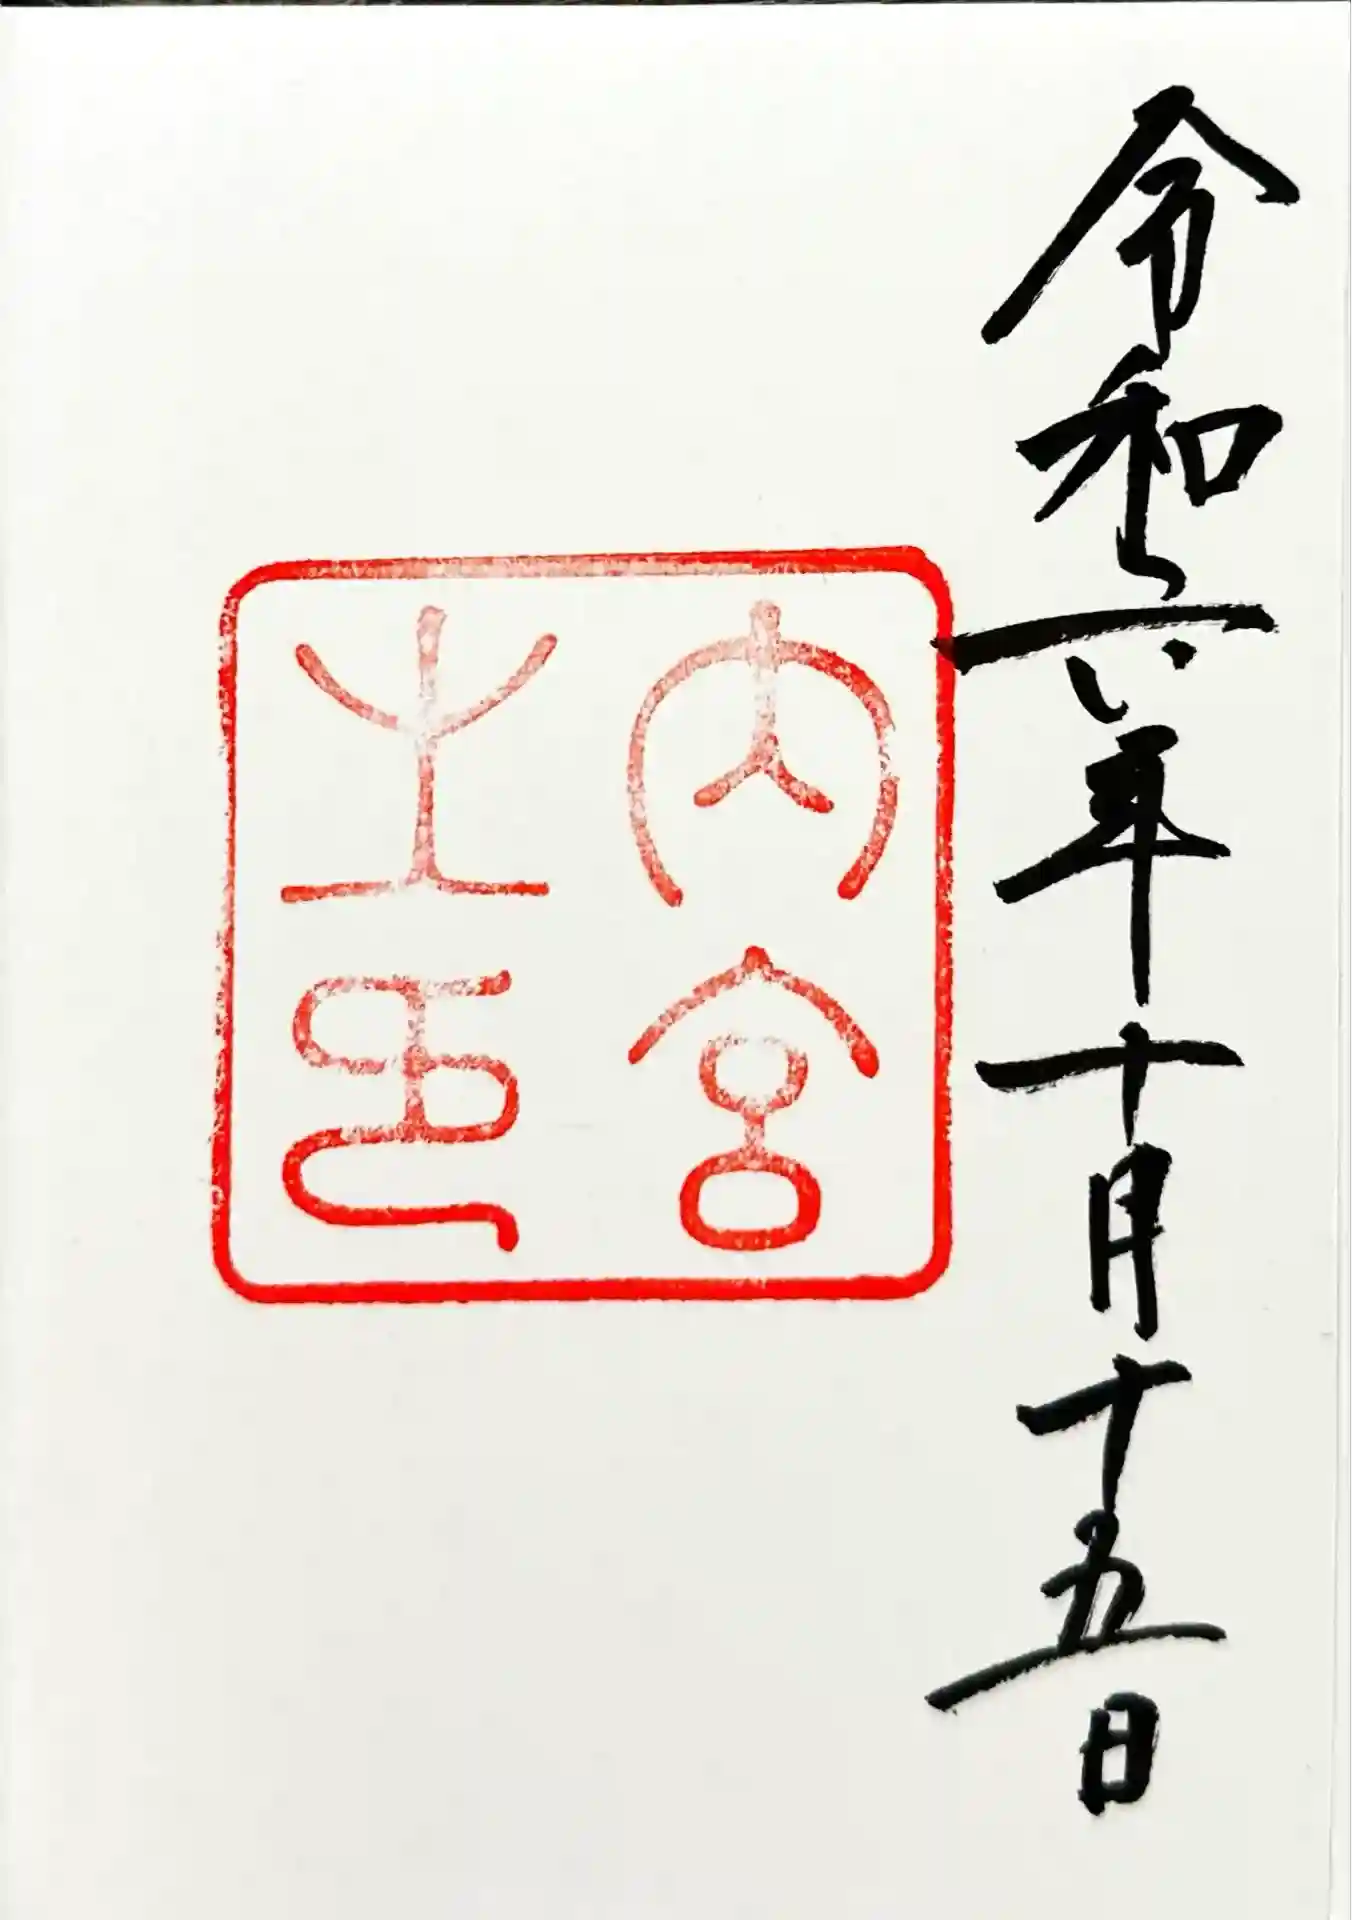 令和六年十月十五日
内宮
之印